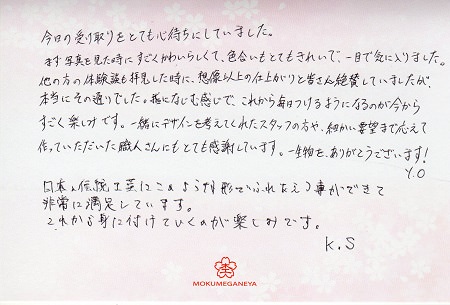 今日の受け取りをとても心待ちにしていました。
まず写真を見た時にすごくかわいらしくて、色合いもとてもきれいで、一目で気に入りました。
他の方の体験談も拝見した時に、想像以上の仕上がりと皆さん絶賛していましたが、
本当にその通りでした。指になじむ感じで、これから毎日つけるようになるのが今から
すごく楽しみです。一緒にデザインを考えてくれたスタッフの方や、細かい要望まで応えて
作っていただいた職人さんにもとても感謝しています。一生物を、ありがとうございます!
Y.O
日本の伝統工芸にこのような形でふれあえる事ができて
非常に満足しています。
これから身に付けていくのが楽しみです。
K.S
MOKUMEGANEYA